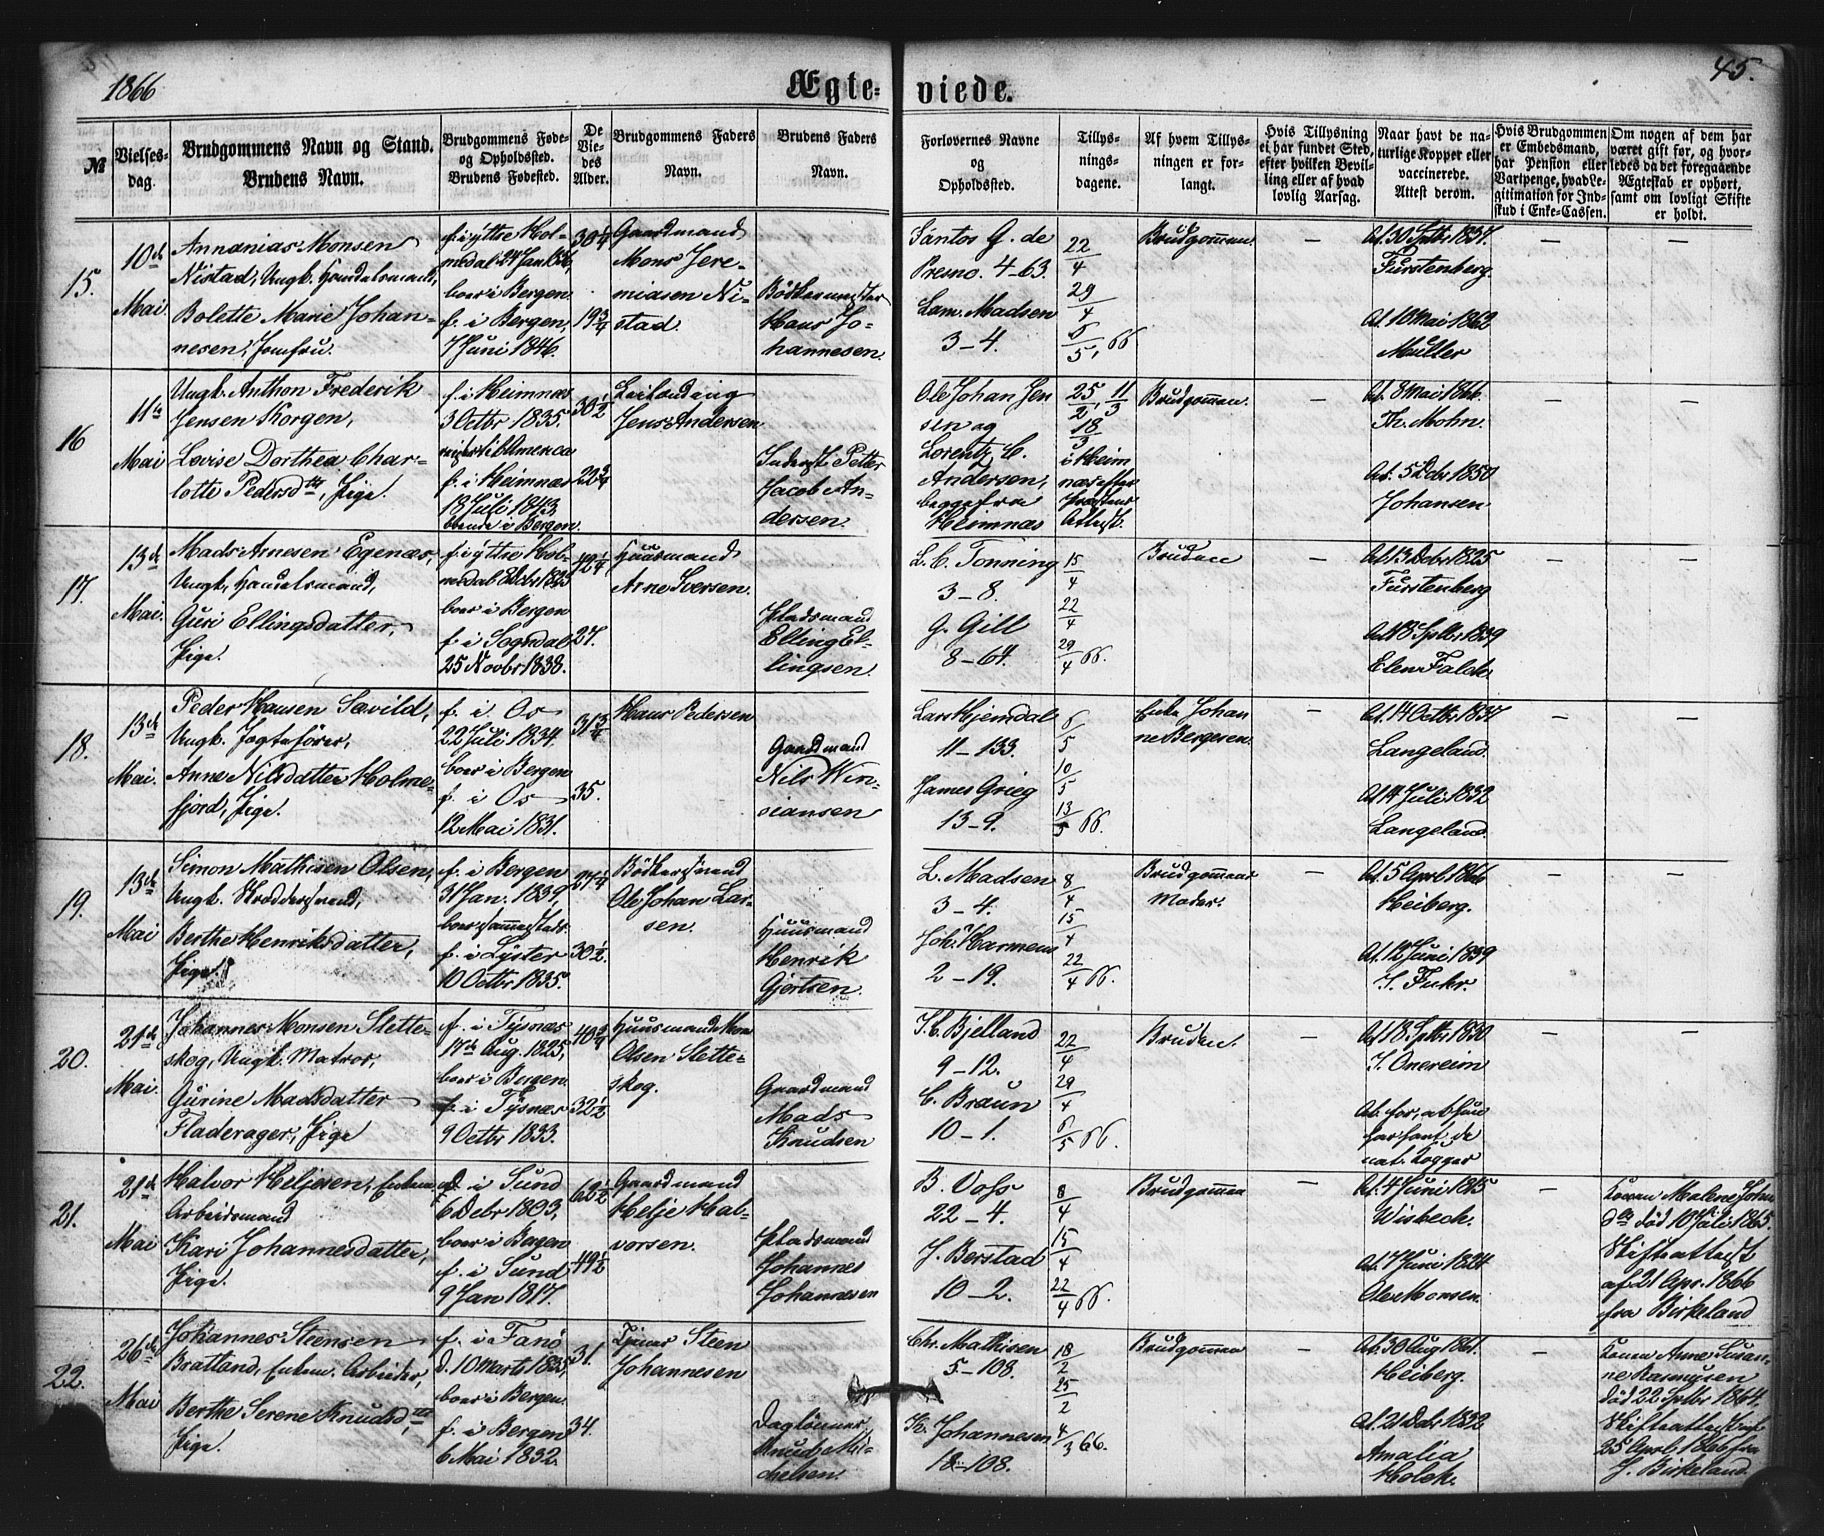 1866
Ægte-
viede.
45.
№
Vielses-
dag.
Brudgommens Navn og Stand.
Brudens Navn.
Brudgommens Føde-
og Opholdssted.
Brudens Fødested.
De
Vie-
des
Alder.
Brudgommens Faders
Navn.
Brudens Faders
Navn.
Forlovernes Navne
og
Opholdssted.
Tillys-
nings-
dagene.
Af hvem Tillys-
ningen er for-
langt.
Hvis Tillysning
ei har fundet Sted,
efter hvilken Bevil-
ling eller af hvad
lovlig Aarsag.
Naar havt de na-
turlige Kopper eller
vaccinerede.
Attest derom.
Hvis Brudgommen
er Embedsmand,
har Pension eller
Vartpenge, hvad Le-
gitimation for Ind-
skud i Enke-Cassen.
Om nogen af dem har
været gift før, og hvor-
ledes da det foregaaende
Ægteskab er ophørt,
samt om lovligt Skifte
er holdt.
15.
10de
Mai.
Annanias Monsen
Nistad, Ungk. Handelsmand,
Bolette Marie Johan-
nesen, Jomfru.
f. i yttre Hol-
medal 24 Jan 1836,
boer i Bergen
f. i Bergen,
7 Juni 1846.
30 1/4
19 3/4
Gaardmand
Mons Jere-
miasen Ni-
stad.
Bødkermester
Hans Jo-
hannesen.
Santos G. de
Presno. 4-63.
Lam. Madsen
3-4.
22/4
29/4
6/5, 66
Brudgommen.
—
At. 30 Septbr 1837.
Fürstenberg.
At. 18 Mai 1862
Müller
—
—
16
11te
Mai
Ungk. Anthon Frederik
Jensen Korgen,
Lovise Dorthea Char-
lotte Pedersdtr, Pige.
f. i Heimnæs
3 Octbr 1835.
reiser til America
f. i Heimnæs
18 Juli 1843,
boende i Bergen.
30 1/2
22 3/4
Leilending
Jens Andersen
Inderst Petter
Jacob An-
dersen.
Ole Johan Jen
sen og
Lorentz C.
Andersen,
begge fra
Heimnæs
25/2, 11/3
18/3
i Heim
næs efter
Præstens
Attest.
Brudgommen.
—
At. 8 Mai 1866.
Th. Mohn.
At. 5 Debr 1850
Johansen
—
—
17.
13de
Mai.
Mads Arnesen Egenæs,
Ungk. Handelsmand,
Guri Ellingsdatter,
Pige.
f. i yttre Hol-
medal 8 Debr 1823
boer i Bergen
f. i Sogndal
25 Novbr 1838.
42 1/4
27.
Huusmand
Arne Iversen.
Pladsmand
Elling El-
lingsen.
L. C. Tonning
3-8.
G. Gill
8-64.
15/4
22/4
29/4 66.
Bruden
—
At. 13 Debr 1825
Fürstenberg
At. 18 Septbr 1839
Elen Falck.
—
—
18.
13de
Mai.
Peder Hansen Sævild,
Ungk. Jagtefører,
Anne Nilsdatter Holme-
fjord, Pige.
f. i Os
22 Juli 1834.
boer i Bergen
f. i Os
12 Mai 1831.
31 3/4
35.
Hans Pedersen
Gaardmand
Nils Win-
siansen
Lars Hjemdal
11-133.
James Grieg
13-9.
6/5
10/5
13/5 66.
Enke Johan
ne Bergesen.
—
At. 14 Octbr 1837
Langeland.
At. 14 Juli 1832
Langeland.
—
—
19.
13de
Mai
Simon Mathisen Olsen,
Ungk. Skræddersvend,
Berthe Henriksdatter,
Pige.
f. i Bergen
31 Jan. 1839,
boer sammesteds.
f. i Lyster
10 Octbr 1835.
27 1/4
30 1/2.
Bødkersvend
Ole Johan Lar-
sen.
Huusmand
Henrik
Gjertsen.
L. Madsen
3-4.
Joh. Harmens
2-19.
8/4
15/4
22/4 66.
Brudgommens
Moder.
—
At. 5 April 1866
Heiberg.
At. 12 Juni 1839
J. Fuhr.
—
—
20.
21de
Mai.
Johannes Monsen Slette-
skog, Ungk. Matros,
Gurine Madsdatter
Fladerager, Pige
f. i Tysnæs
17de Aug. 1825,
boer i Bergen.
f. i Tysnæs
9 Octbr 1833.
40 3/4
32 1/2
Huusmand Mons
Olsen Slette-
skog.
Gaardmand
Mads
Knudsen
J. C. Bjelland
9-12.
C. Braun
10-1.
22/4
29/4
6/5 66.
Bruden.
—
At. 18 Septbr 1830
J. Onereim
At. for, at hun
har havt de
nat. Kopper
—
—
21.
21de
Mai
Halvor Heljesen, Enkem.
Arbeidsmand
Kari Johannesdatter,
Pige.
f. i Sund
6 Debr 1803,
boer i Bergen
f. i Sund
9 Jan 1817.
62 1/2
49 1/2
Gaardmand
Helje Hal-
vorsen.
Pladsmand
Johannes
Johannesen
B. Voss
22-4.
J. Berstad
10-2.
8/4
15/4
22/4 66.
Brudgommen
—
At. 4 Juni 1845
Wisbech.
At. 7 Juni 1824
Ole Monsen.
—
Konen Malene Johan
dtr død 10 Juli 1865.
Skifteattest
af 21 Apr. 1866
fra Birkeland
22.
26de
Mai
Johannes Steensen
Bratland, Enkem. Arbeider,
Berthe Serene Knudsdtr
Pige.
f. i Fanø
d. 10 Marts 1835,
boer i Bergen.
f. i Bergen
6 Mai 1832.
31.
34.
Steen
Johannesen
Dagleuner
Knud Mi-
chelsen.
Chr. Mathisen
5-108.
K. Johannesen
18-108.
18/2
25/2
4/3 66.
Brudgommen
—
At. 30 Aug 1861.
Heiberg.
At. 21 Debr 1832
Amalia
Holck.
—
Konen Anne Susan-
ne Rasmusen
død 22 Septbr 1864.
Skifteattest af
25 April 1866 fra
J. Birkeland.